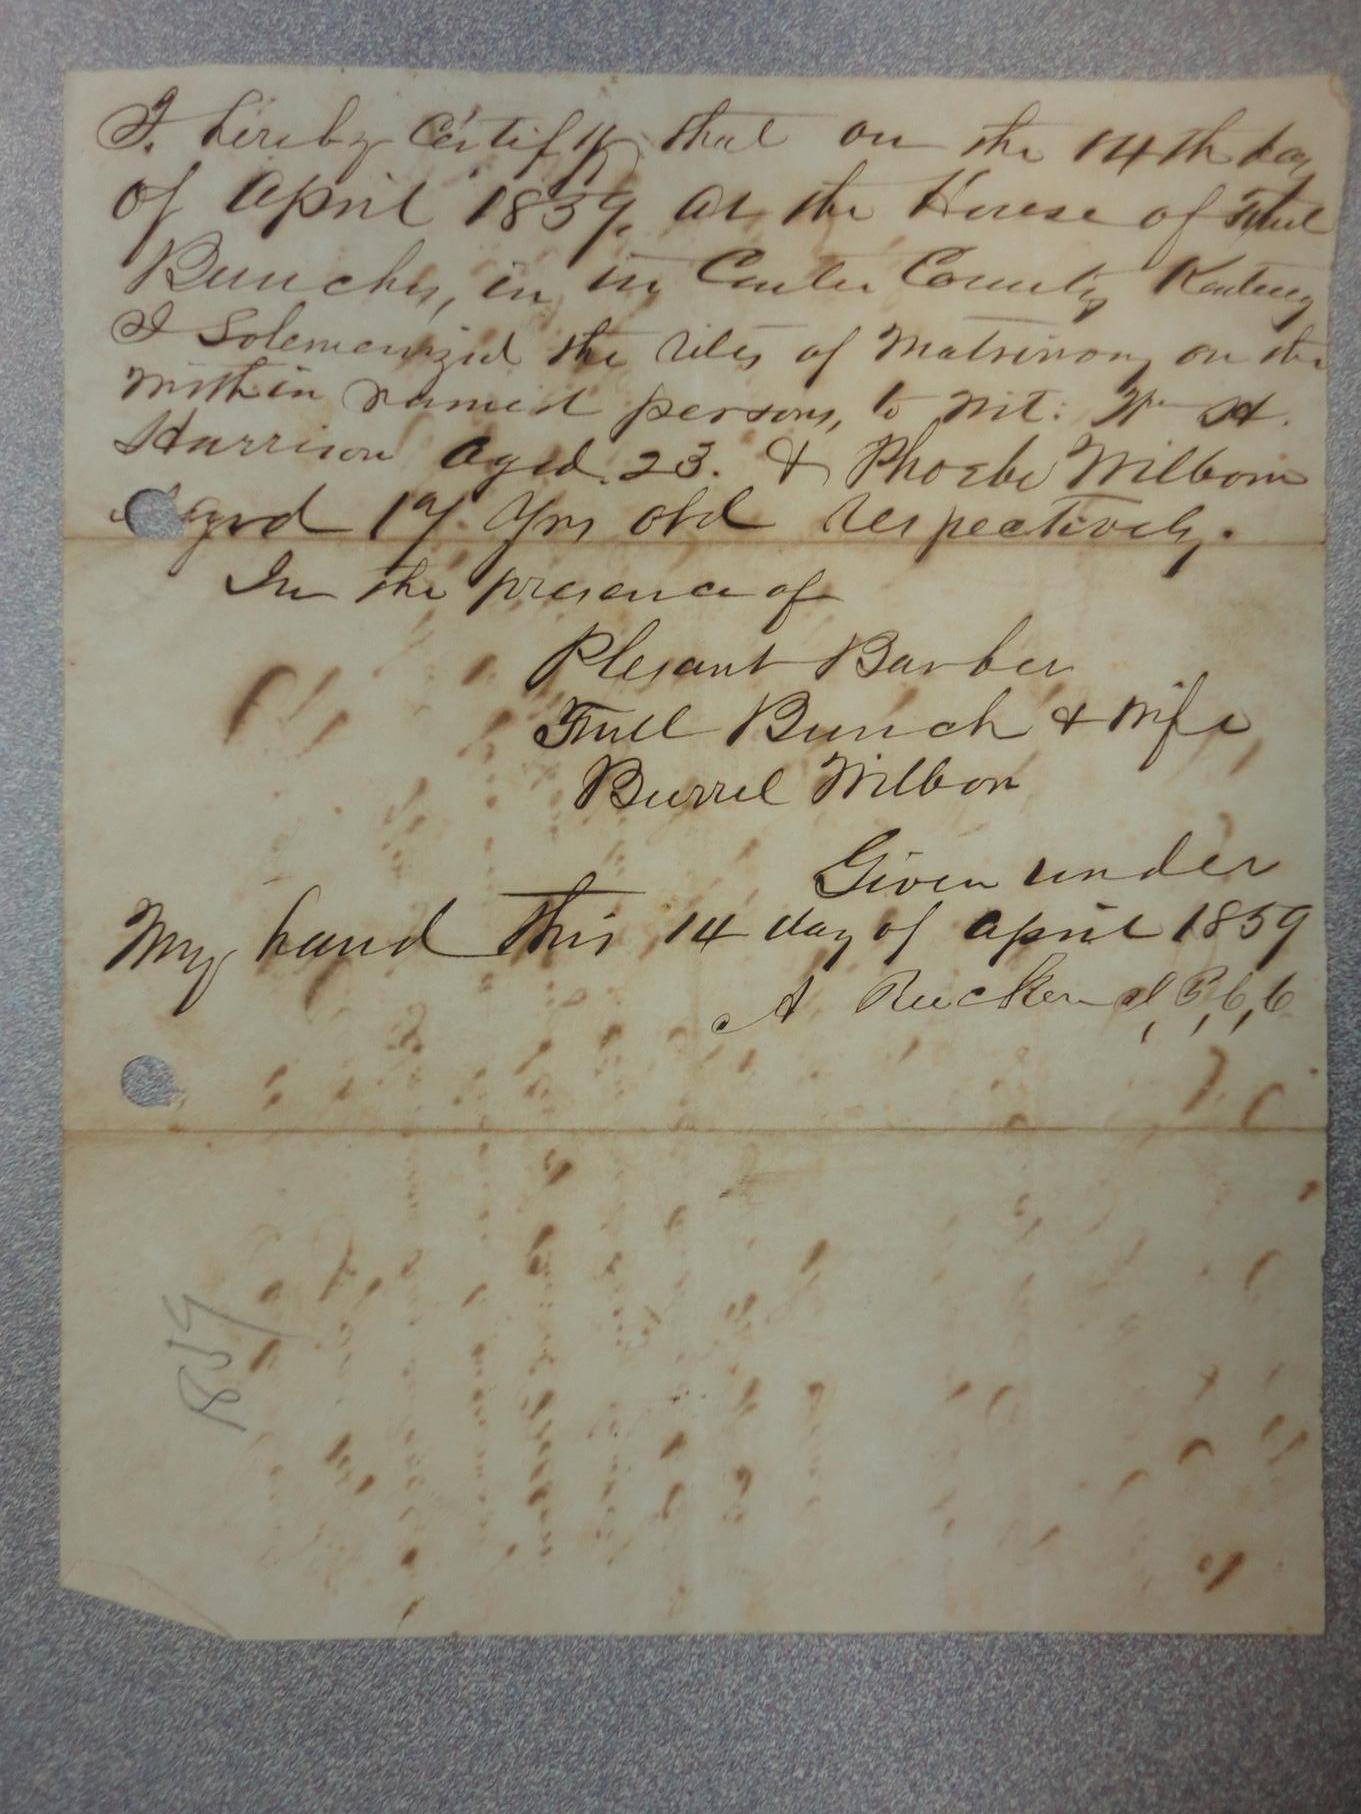 I hereby Certify that on the 14th day
of April 1859, at the House of
Bunchs, in in Carter County Kentucy
I Solemenized the rites of Matrimony on the
within named persons, to wit: Wm H.
Harrison aged 23. & Phoebe Wilborn
aged 19 Yrs old respectively.
In the presence of
Plesant Barber
Bunch & wife
Burrel Wilborn
Given under
My hand this 14 day of April 1859
A Rucker J, P, C, C